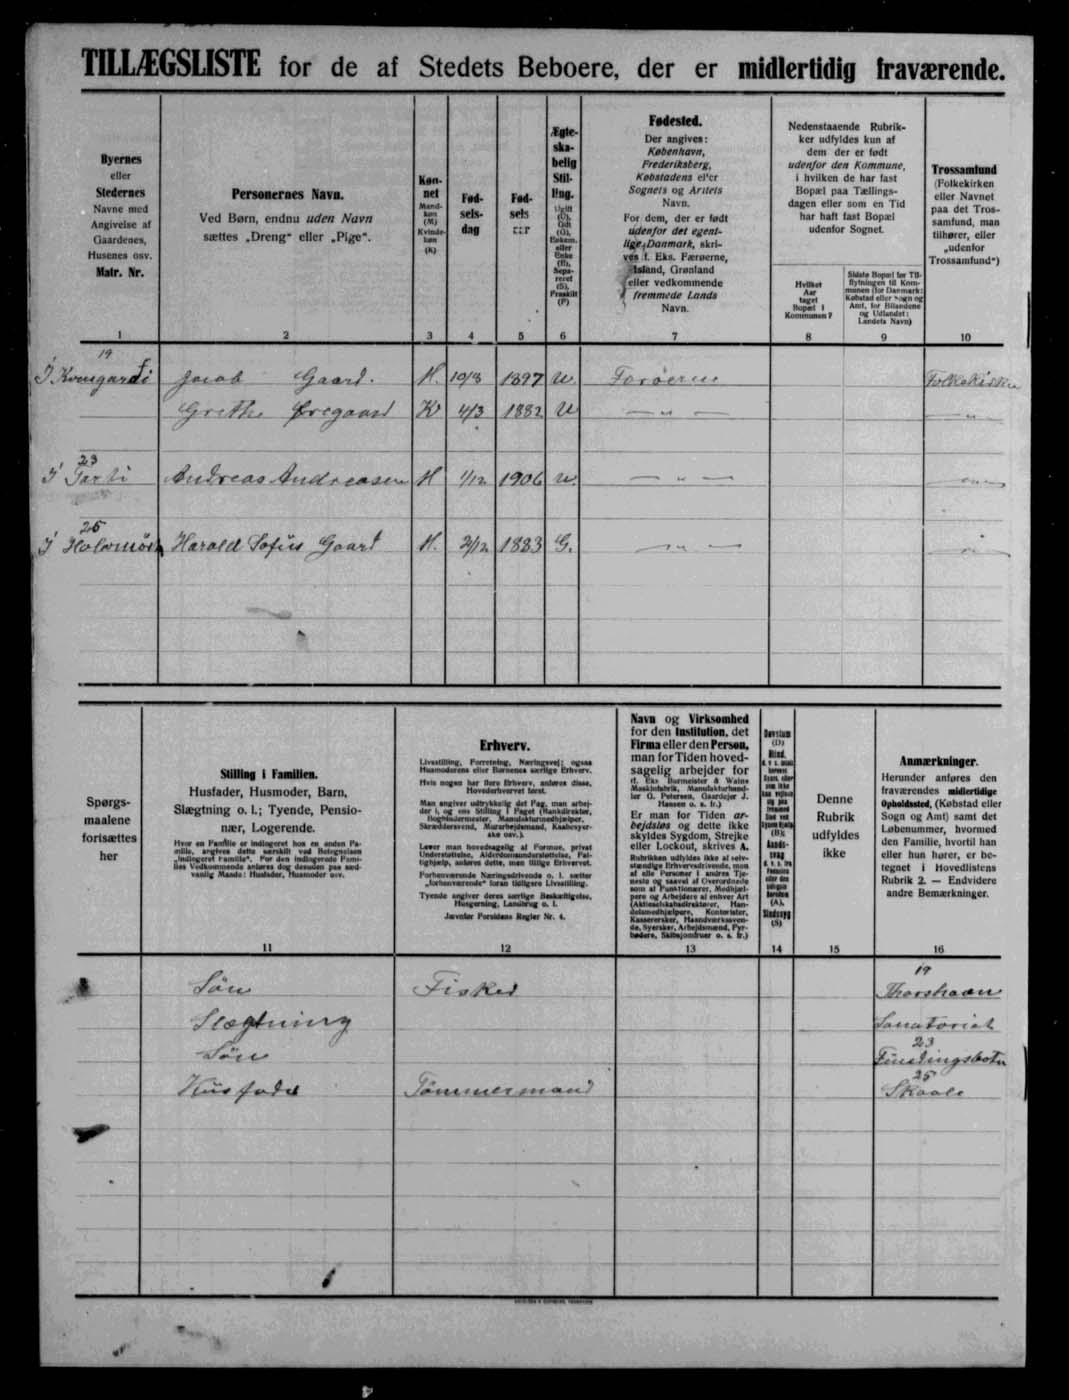 TILLÆGSLISTE for de af Stedets Beboere, der er midlertidig fraværende.
Byernes
eller
Stedernes
Navne med
Angivelse af
Gaardenes,
Husenes osv.
Matr. Nr.
1
Personernes Navn.
Ved Børn, endnu uden Navn
sættes „Dreng“ eller „Pige“.
2
Køn-
net
Mand-
køn
(M)
Kvinde-
køn
(K)
3
Fød-
sels-
dag
4
Fød-
sels
aar
5
Ægte-
ska-
belig
Stil-
ling.
Ugift
(U),
Gift
(G),
Enkem.
eller
Enke
(E),
Sepa-
reret
(S),
Fraskilt
(F)
6
Fødested.
Der angives:
København,
Frederiksberg,
Købstadens eller
Sognets og Amtets
Navn.
For dem, der er født
udenfor det egent-
lige Danmark, skri-
ves f. Eks. Færøerne,
Island, Grønland
eller vedkommende
fremmede Lands
Navn.
7
Nedenstaaende Rubrik-
ker udfyldes kun af
dem der er født
udenfor den Kommune,
i hvilken de har fast
Bopæl paa Tællings-
dagen eller som en Tid
har haft fast Bopæl
udenfor Sognet.
Hvilket
Aar
taget
Bopæl i
Kommunen?
8
Sidste Bopæl før Til-
flytningen til Kom-
munen (for Danmark:
Købstad eller Sogn og
Amt, for Bilandene
og Udlandet:
Landets Navn)
9
Trossamfund
(Folkekirken
eller Navnet
paa det Tros-
samfund, man
tilhører, eller
„udenfor
Trossamfund“)
10
19
Jacob Gaard. M. 1897 U. Færøerne Folkekirken
Grethe Øregaard K 4/3 1882 U — „ — — „ —
23
Andreas Andreasen M 1/12 1906 U. — „ —
25
Harald Sofus Gaard M. 2/12 1883 G. — „ —
Spørgs-
maalene
fortsættes
her
Stilling i Familien.
Husfader, Husmoder, Barn,
Slægtning o. l.; Tyende, Pensio-
nær, Logerende.
Hvor en Familie er indlogeret hos en anden Fa-
milie, angives dette særskilt ved Betegnelsen
„indlogeret Familie“. For den indlogerede Fami-
lies Vedkommende anføres dog desuden paa sæd-
vanlig Maade: Husfader, Husmoder osv.
11
Erhverv.
Livsstilling, Forretning, Næringsvej; ogsaa
Husmoderens eller Børnenes særlige Erhverv.
Hvis nogen har flere Erhverv, anføres disse,
Hovederhvervet først.
Man angiver udtrykkelig det Fag, man arbej-
der i, og ens Stilling i Faget (Bankdirektør,
Bogbindermester, Manufakturmedhjælper,
Skræddersvend, Murarbejdsmand, Kaabesyer-
ske osv.).
Lever man hovedsagelig af Formue, privat
Understøttelse, Alderdomsunderstøttelse, Fat-
tighjælp, anføres dette, men tillige Erhvervet.
Forhenværende Næringsdrivende o. l. sætter
„forhenværende“ foran tidligere Livsstilling.
Tyende angiver deres særlige Beskæftigelse,
Husgerning, Landbrug o. l.
Jævnfør Forsidens Regler Nr. 4.
12
Navn og Virksomhed
for den Institution, det
Firma eller den Person,
man for Tiden hoved-
sagelig arbejder for
(f. Eks. Burmeister & Wains
Maskinfabrik, Manufakturhand-
ler G. Petersen, Gaardejer J.
Hansen o. s. fr.)
Er man for Tiden ar-
bejdsløs og dette ikke
skyldes Sygdom, Strejke
eller Lockout, skrives A.
Rubrikken udfyldes ikke af selv-
stændige Erhvervsdrivende, men
af alle Personer i andres Tje-
neste og saavel af Overordnede
som af Funktionærer, Medhjæl-
pere og Arbejdere af enhver Art
(Aktieselskabsdirektører, Han-
delsmedhjælpere, Kontorister,
Kasserersker, Haandværkssven-
de, Syersker, Arbejdsmænd, Fyr-
bødere, Skibsjomfruer o. s. fr.)
13
Døvstum
(D)
Blind,
(B);
Aands-
svag
(A),
Sindssyg
(S)
14
Denne
Rubrik
udfyldes
ikke
15
Anmærkninger.
Herunder anføres den
fraværendes midlertidige
Opholdssted, (Købstad eller
Sogn og Amt) samt det
Løbenummer, hvormed
den Familie, hvortil han
eller hun hører, er be-
tegnet i Hovedlistens
Rubrik 2. — Endvidere
andre Bemærkninger.
16
19
Søn Fisker Thorshavn
Slægtning Sanatoriet
23
Søn Fundingsbotn
25
Husfader Tømmermand Skaale